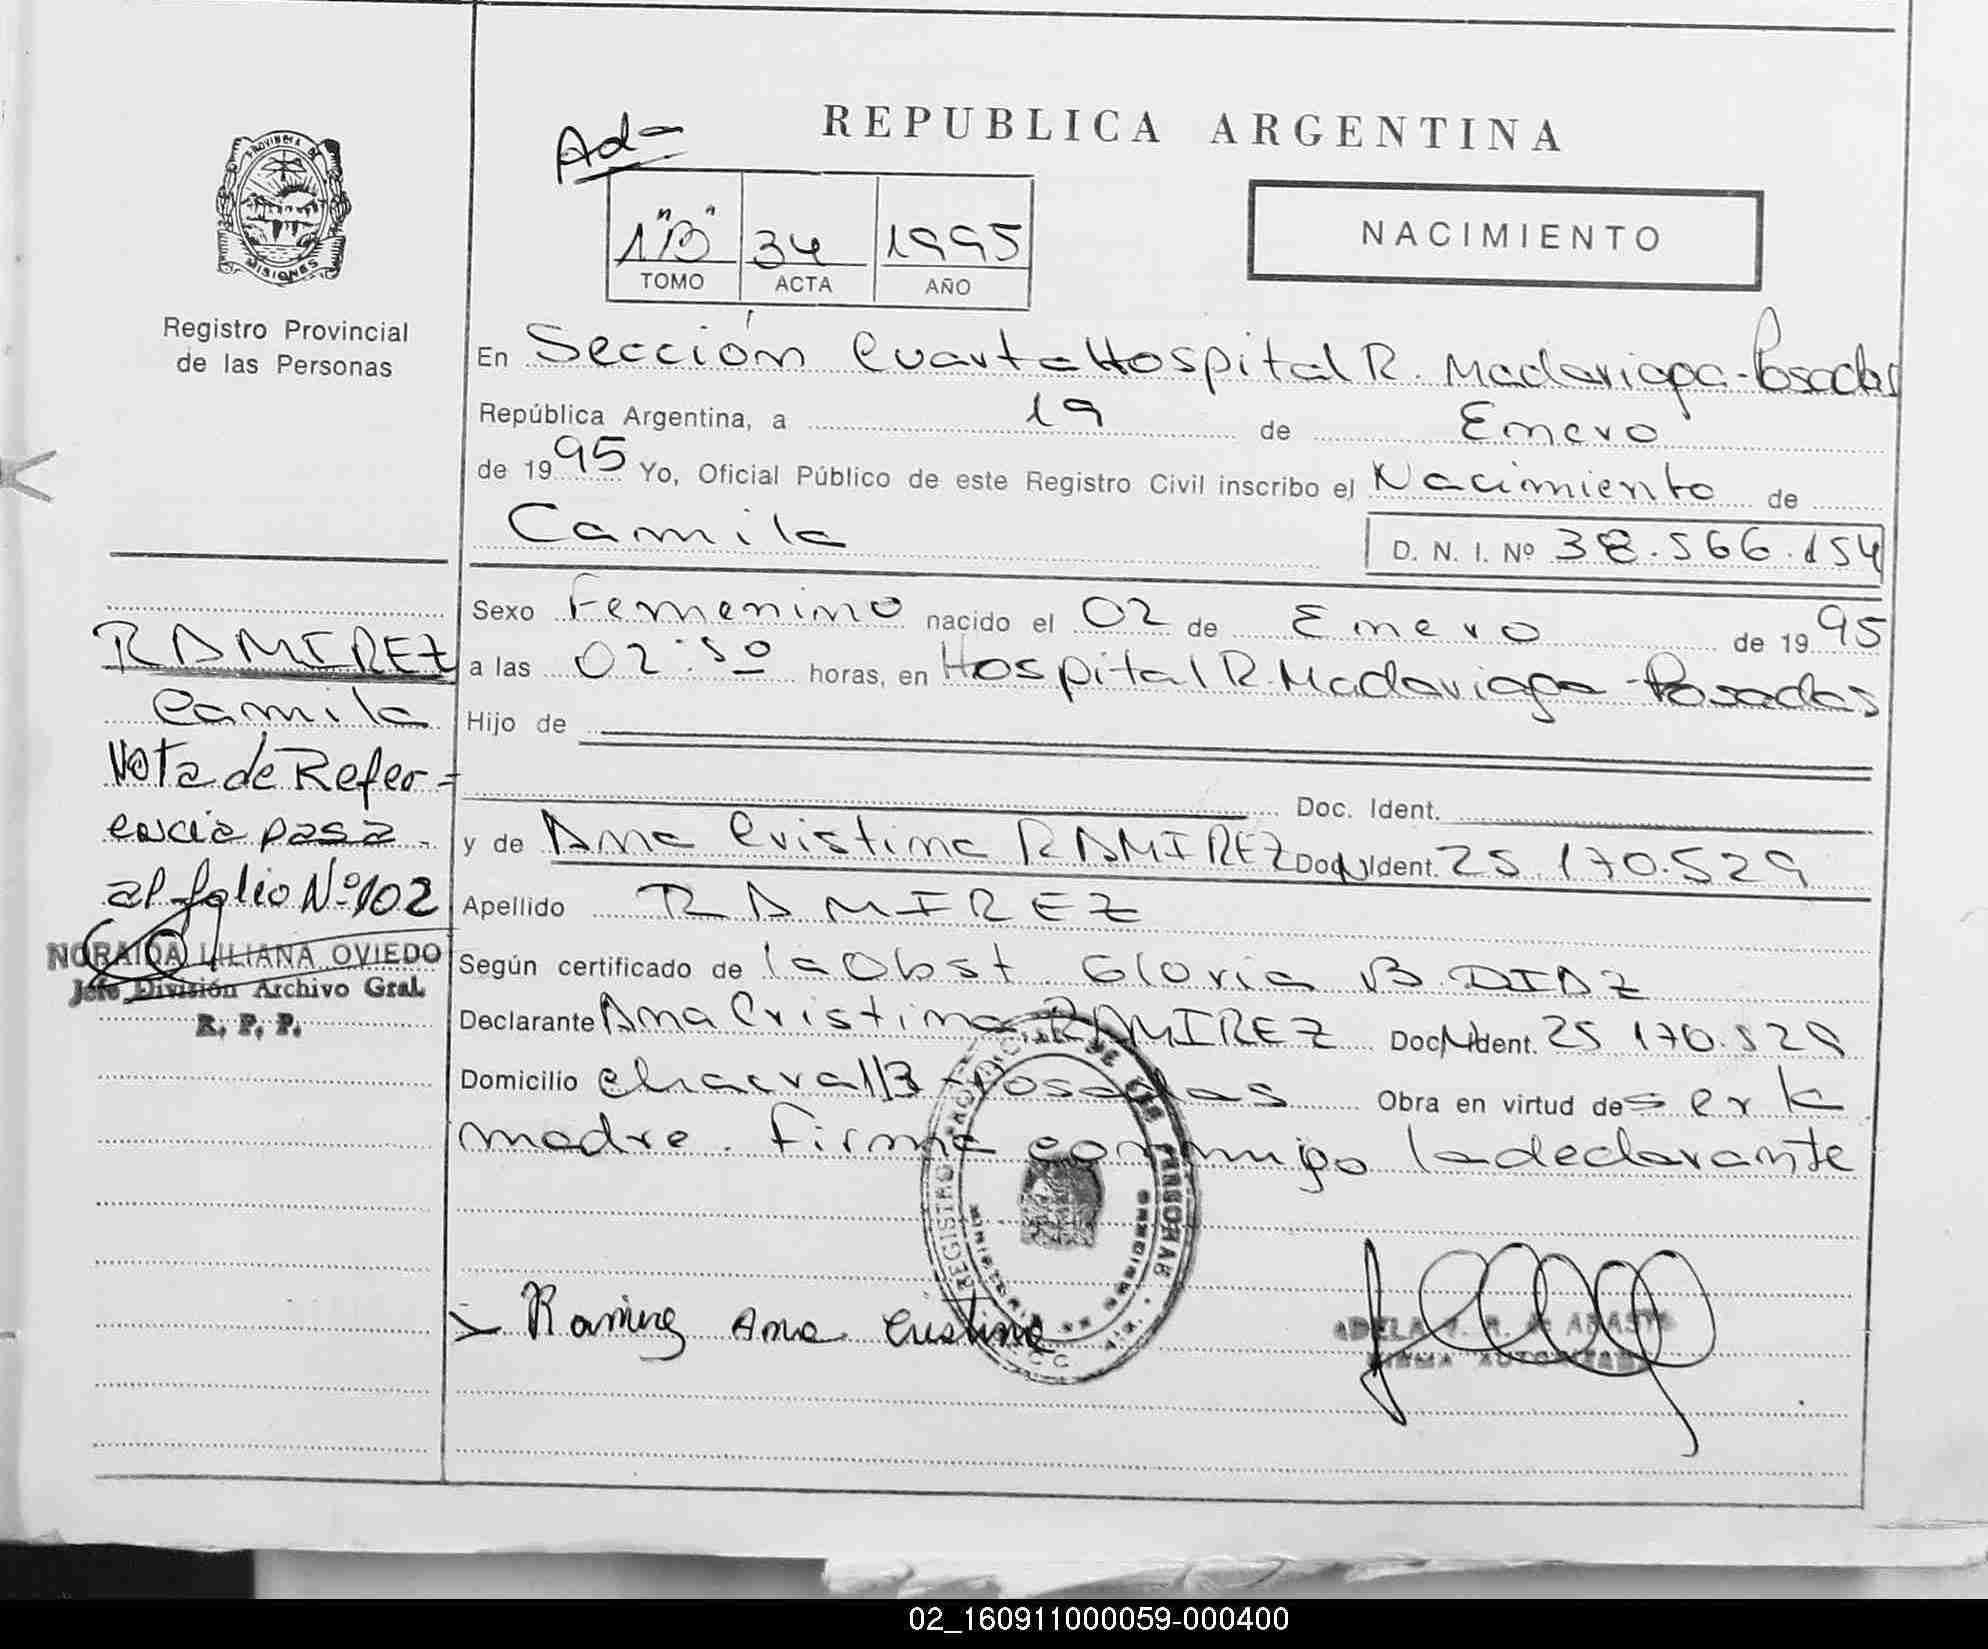 PROVINCIA DE
MISIONES
Registro Provincial
de las Personas
REPUBLICA ARGENTINA
Ad=
1"B" 34 1995
TOMO ACTA AÑO
NACIMIENTO
En Sección Cuarta Hospital R. Madariaga - Posadas
República Argentina, a 19 de Enero
de 1995 Yo, Oficial Público de este Registro Civil inscribo el Nacimiento de
Camila D. N. I. Nº 38.566.154
Sexo Femenino nacido el 02 de Enero de 1995
a las 02:50 horas, en Hospital R. Madariaga - Posadas
Hijo de
Doc. Ident.
y de Ana Cristina RAMIREZ Doc. Ident. 25.170.529
Apellido RAMIREZ
Según certificado de la Obst. Gloria B. DIAZ
Declarante Ana Cristina RAMIREZ Doc. Ident. 25.170.529
Domicilio Chacra 113 - Posadas Obra en virtud de ser la
madre. Firma conmigo la declarante
Ramirez Ana Cristina
RAMIREZ
Camila
Nota de Refer-
encia pasa
al folio Nº 102
NORAIDA LILIANA OVIEDO
Jefe División Archivo Gral.
R. P. P.
02_160911000059-000400